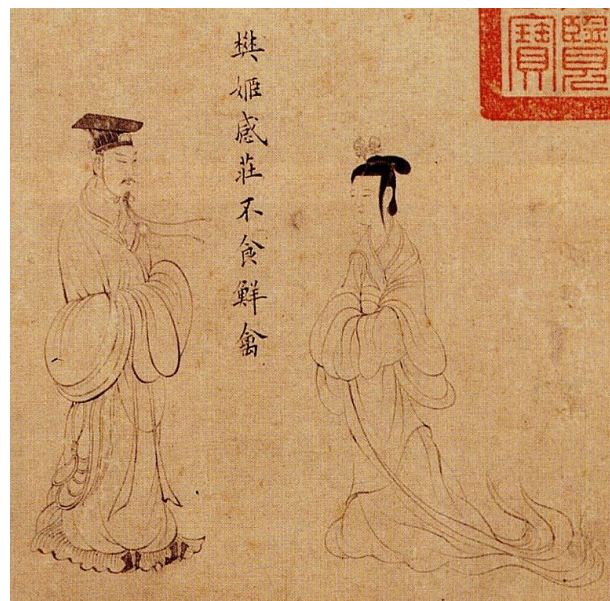 樊姬感莊不食鮮禽
覽
寶